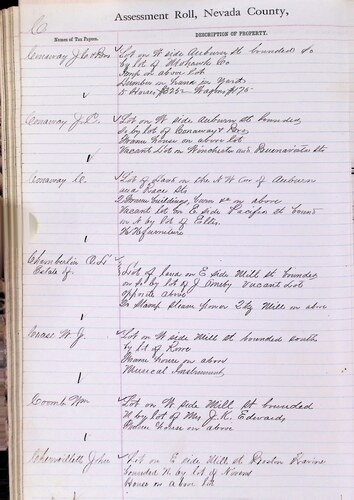 C
Assessment Roll, Nevada County,
Names of Tax Payers.
DESCRIPTION OF PROPERTY.
Conaway J. C. & Bro
Lot on W side Auburn St bounded So
by lot of Mohawk Co
Imp on above lot
Lumber on hand in Yard
5 Horses $325 2 Wagons $175
1
Conaway J. C.
Lot on W side Auburn St bounded
So by lot of Conaway & Bro
Frame House on above lot
Vacant Lot on Winchester and Buenavista Sts
1
Conaway
Lot of land on the N W Cor of Auburn
and Race Sts
2 Frame buildings, Barn &c on above
Vacant lot on E side Pacific St bound
on N by lot of
H H furniture
1
Chamberlin
Estate of
Lot of land on E side Mill St bounded
on So by lot of J Ormsby Vacant Lot
opposite above
Stamp Steam power Qtz Mill on above
1
Crase W. J.
Lot on W side Mill St bounded south
by lot of Rowe
Frame House on above
Musical Instrument
1
Coomb Wm
Lot on W side Mill St bounded
N by lot of Mrs J. K. Edwards
House on above
1
John
Lot on E side Mill St Boston Ravine
bounded N by lot of
House on above lot